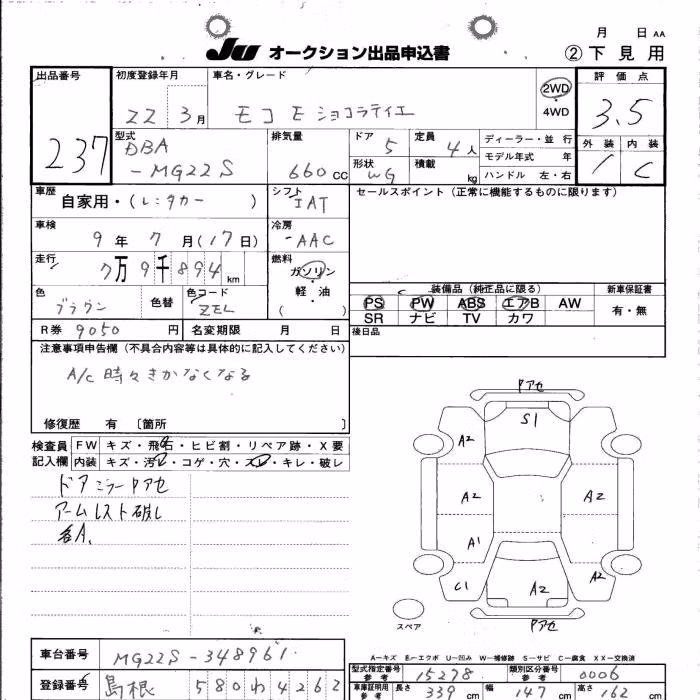 月 日 AA
JU オークション出品申込書
② 下見用
出品番号
237
初度登録年月
22 3月
車名・グレード
モコ E ショコラティエ
2WD
4WD
評価点
3.5
外装 内装
1 C
型式
DBA
-MG22S
排気量
660 cc
ドア
5
定員
4 人
形状
WG
積載
kg
ディーラー・並行
モデル年式 年
ハンドル 左・右
車歴
自家用・(レンタカー )
シフト
IAT
セールスポイント(正常に機能するものに限ります)
車検
9 年 7 月(17日)
冷房
AAC
走行
7万9千894 km
燃料
ガソリン
軽・油
( )
色
ブラウン
色替
色コード
ZEL
装備品(純正品に限る)
PS PW ABS エアB AW
SR ナビ TV カワ
新車保証書
有・無
R券 9050 円
名変期限 月 日
後日品
注意事項申告欄(不具合内容等は具体的に記入してください)
A/C 時々きかなくなる
修復歴 有 〔箇所 〕
検査員
記入欄
FW キズ・飛石・ヒビ割・リペア跡・X要
内装 キズ・汚レ・コゲ・穴・スレ・キレ・破レ
ドアミラーウアセ
アームレスト破レ
各A.
ウアセ
S1
A2
A2
A2
A1
C1
A2
A2
ウアセ
スペア
A−キズ E−エクボ U−凹み W−補修跡 S−サビ C−腐食 XX−交換済
車台番号
MG22S-348961
登録番号
島根 580 わ 4262
型式指定番号
参考
15278
類別区分番号
参考
0006
車庫証明用
参考
長さ 339 cm
幅 147 cm
高さ 162 cm